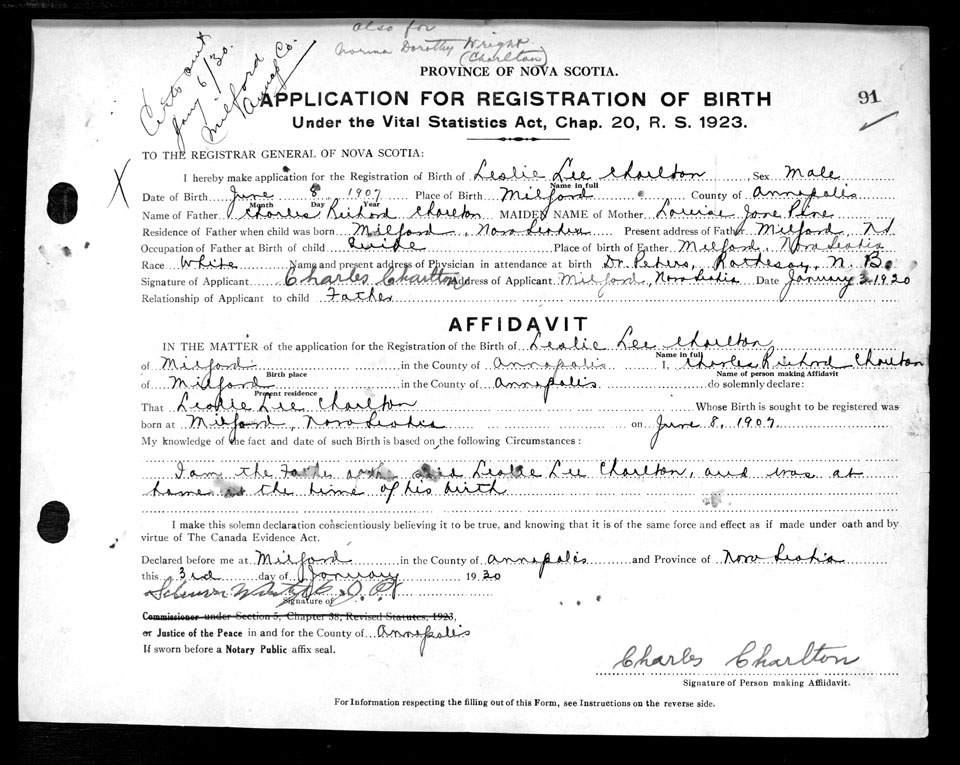 also for
Norma Dorothy Wright
(Charlton)
Certs out
Jany 6/30.
Milford
Annap Co.
PROVINCE OF NOVA SCOTIA.
APPLICATION FOR REGISTRATION OF BIRTH
91
Under the Vital Statistics Act, Chap. 20, R. S. 1923.
TO THE REGISTRAR GENERAL OF NOVA SCOTIA:
X
I hereby make application for the Registration of Birth of Leslie Lee Charlton Sex Male
Name in full
Date of Birth June 8 1907 Place of Birth Milford County of Annapolis
Month Day Year
Name of Father Charles Richard Charlton MAIDEN NAME of Mother Louise Jane Pine
Residence of Father when child was born Milford, Nova Scotia Present address of Father Milford, N.S.
Occupation of Father at Birth of child Guide Place of birth of Father Milford, Nova Scotia
Race White Name and present address of Physician in attendance at birth Dr. Peters, Rothesay, N. B.
Signature of Applicant Charles Charlton Address of Applicant Milford, Nova Scotia Date January 3 1920
Relationship of Applicant to child Father
AFFIDAVIT
IN THE MATTER of the application for the Registration of the Birth of Leslie Lee Charlton
Name in full
of Milford in the County of Annapolis I, Charles Richard Charlton
Birth place Name of person making Affidavit
of Milford in the County of Annapolis do solemnly declare:
Present residence
That Leslie Lee Charlton Whose Birth is sought to be registered was
born at Milford, Nova Scotia on June 8, 1907
My knowledge of the fact and date of such Birth is based on the following Circumstances:
I am the Father of the said Leslie Lee Charlton, and was at
home at the time of his birth
I make this solemn declaration conscientiously believing it to be true, and knowing that it is of the same force and effect as if made under oath and by
virtue of The Canada Evidence Act.
Declared before me at Milford in the County of Annapolis and Province of Nova Scotia
this 3rd day of January 1930
J. P.
Signature of
Commissioner under Section 5, Chapter 38, Revised Statutes, 1923,
or Justice of the Peace in and for the County of Annapolis
If sworn before a Notary Public affix seal.
Charles Charlton
Signature of Person making Affidavit.
For Information respecting the filling out of this Form, see Instructions on the reverse side.